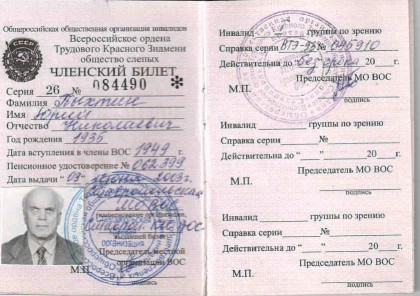 Общероссийская общественная организация инвалидов
Всероссийское ордена
Трудового Красного Знамени
общество слепых
ЧЛЕНСКИЙ БИЛЕТ
Серия 26 № 084490
Фамилия
Имя Юрий
Отчество Николаевич
Год рождения
Дата вступления в члены ВОС 1949 г.
Пенсионное удостоверение № 062399
Дата выдачи "09"
МО ВОС
выдавшей билет
ОРГАНИЗАЦИЯ
Председатель местной
организации ВОС
М.П.
Инвалид группы по зрению
Справка серии ВТЭ № 095910
Действительна до без срока 20 г.
Председатель МО ВОС
М.П.
подпись
Инвалид группы по зрению
Справка серии №
Действительна до " " 20 г.
Председатель МО ВОС
М.П.
подпись
Инвалид группы по зрению
Справка серии №
Действительна до " " 20 г.
Председатель МО ВОС
М.П.
подпись